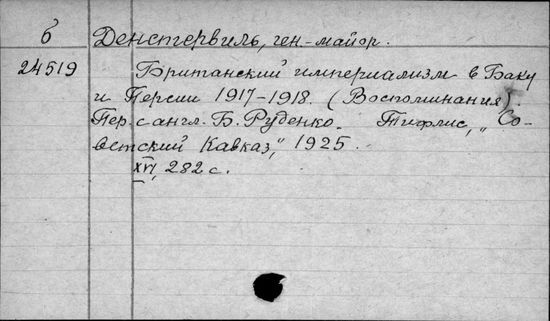 б Денстервиль, ген.-майор.
24519 Британский империализм в Баку
и Персии 1917-1918. (Воспоминания).
Пер. с англ. Б. Руденко. Тифлис, "Со-
ветский Кавказ," 1925.
XVI, 282 с.